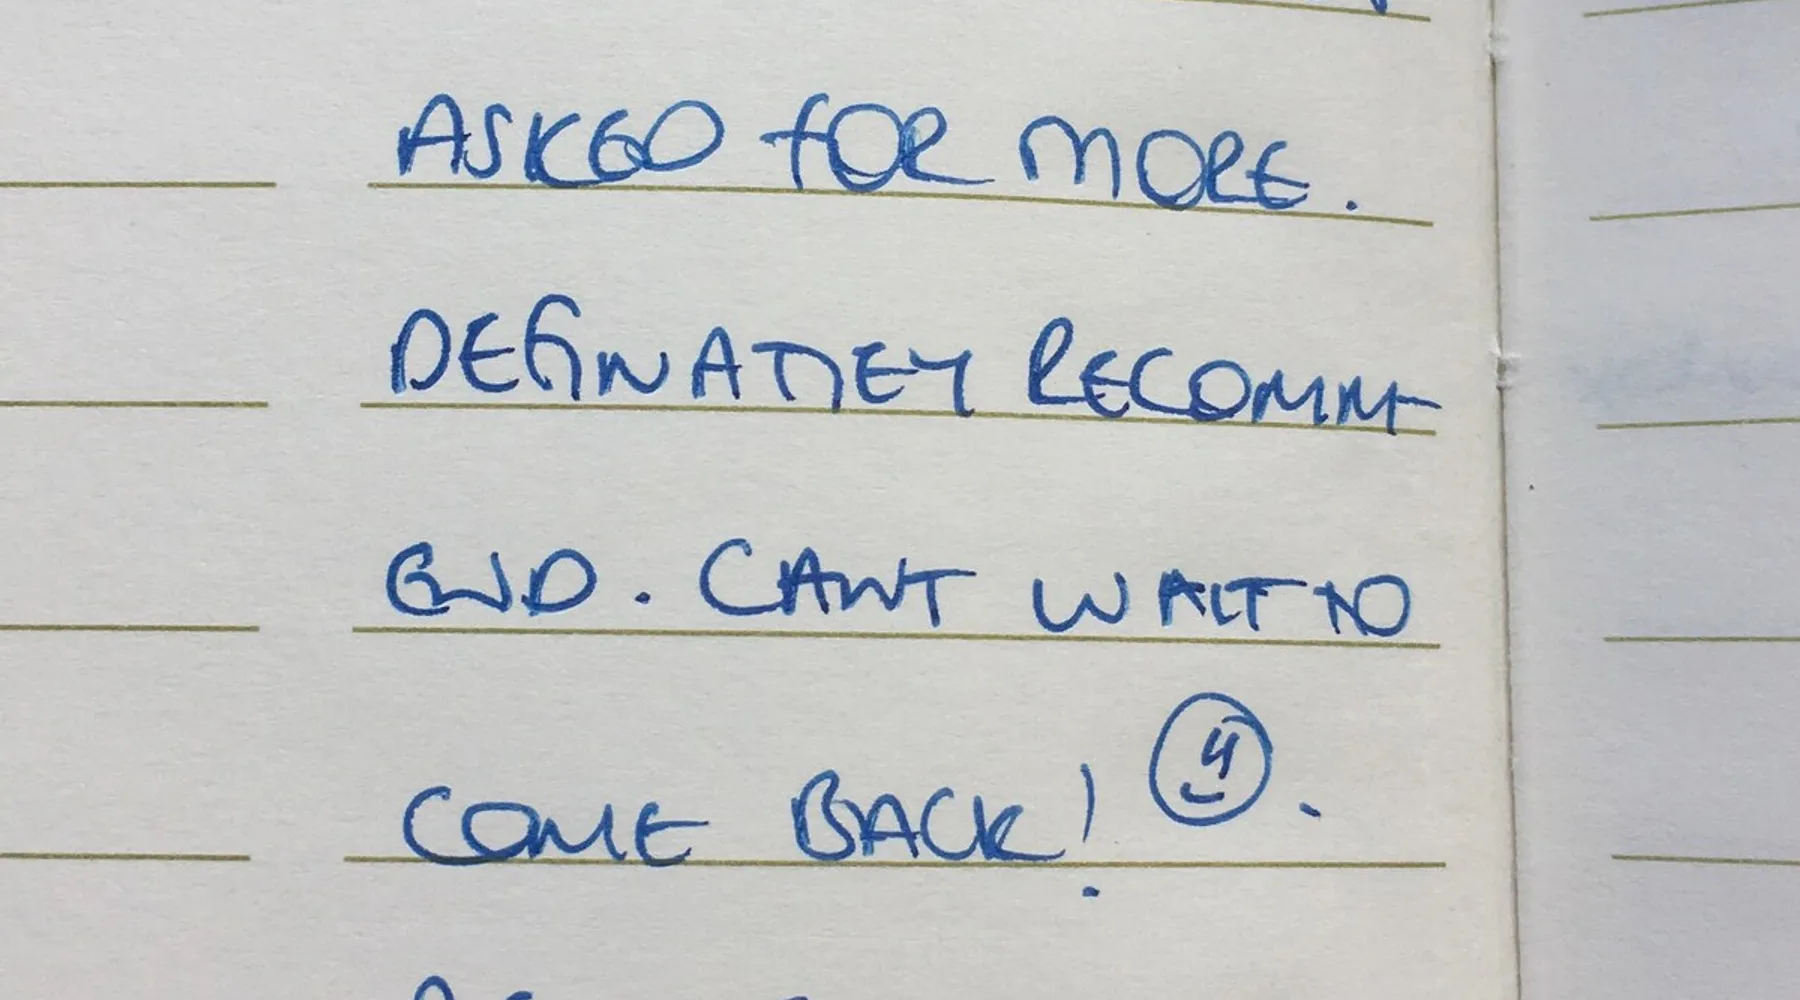 ASKED FOR MORE.
DEFINATLEY RECOMM-
END. CANT WAIT TO
COME BACK!